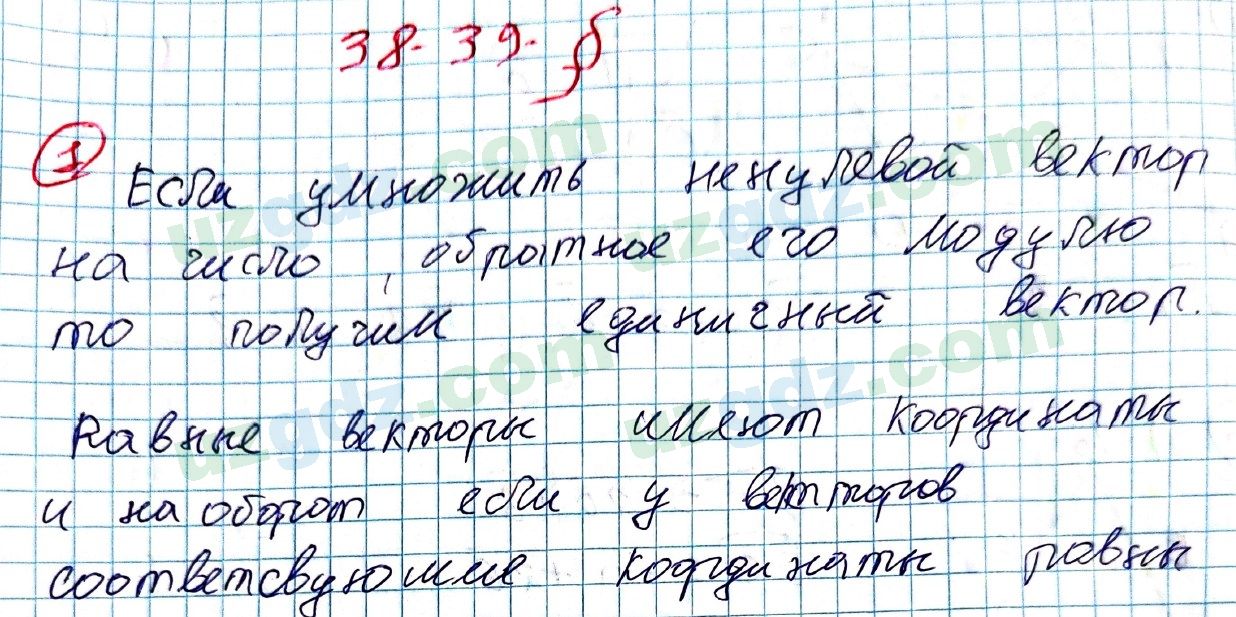 38-39-§
1
Если умножить ненулевой вектор
на число, обратное его модулю
то получим единичный вектор.
Равные векторы имеют координаты
и наоборот если у векторов
соответсвующие координаты равны
uzgdz.com
uzgdz.com
uzgdz.com
uzgdz.com